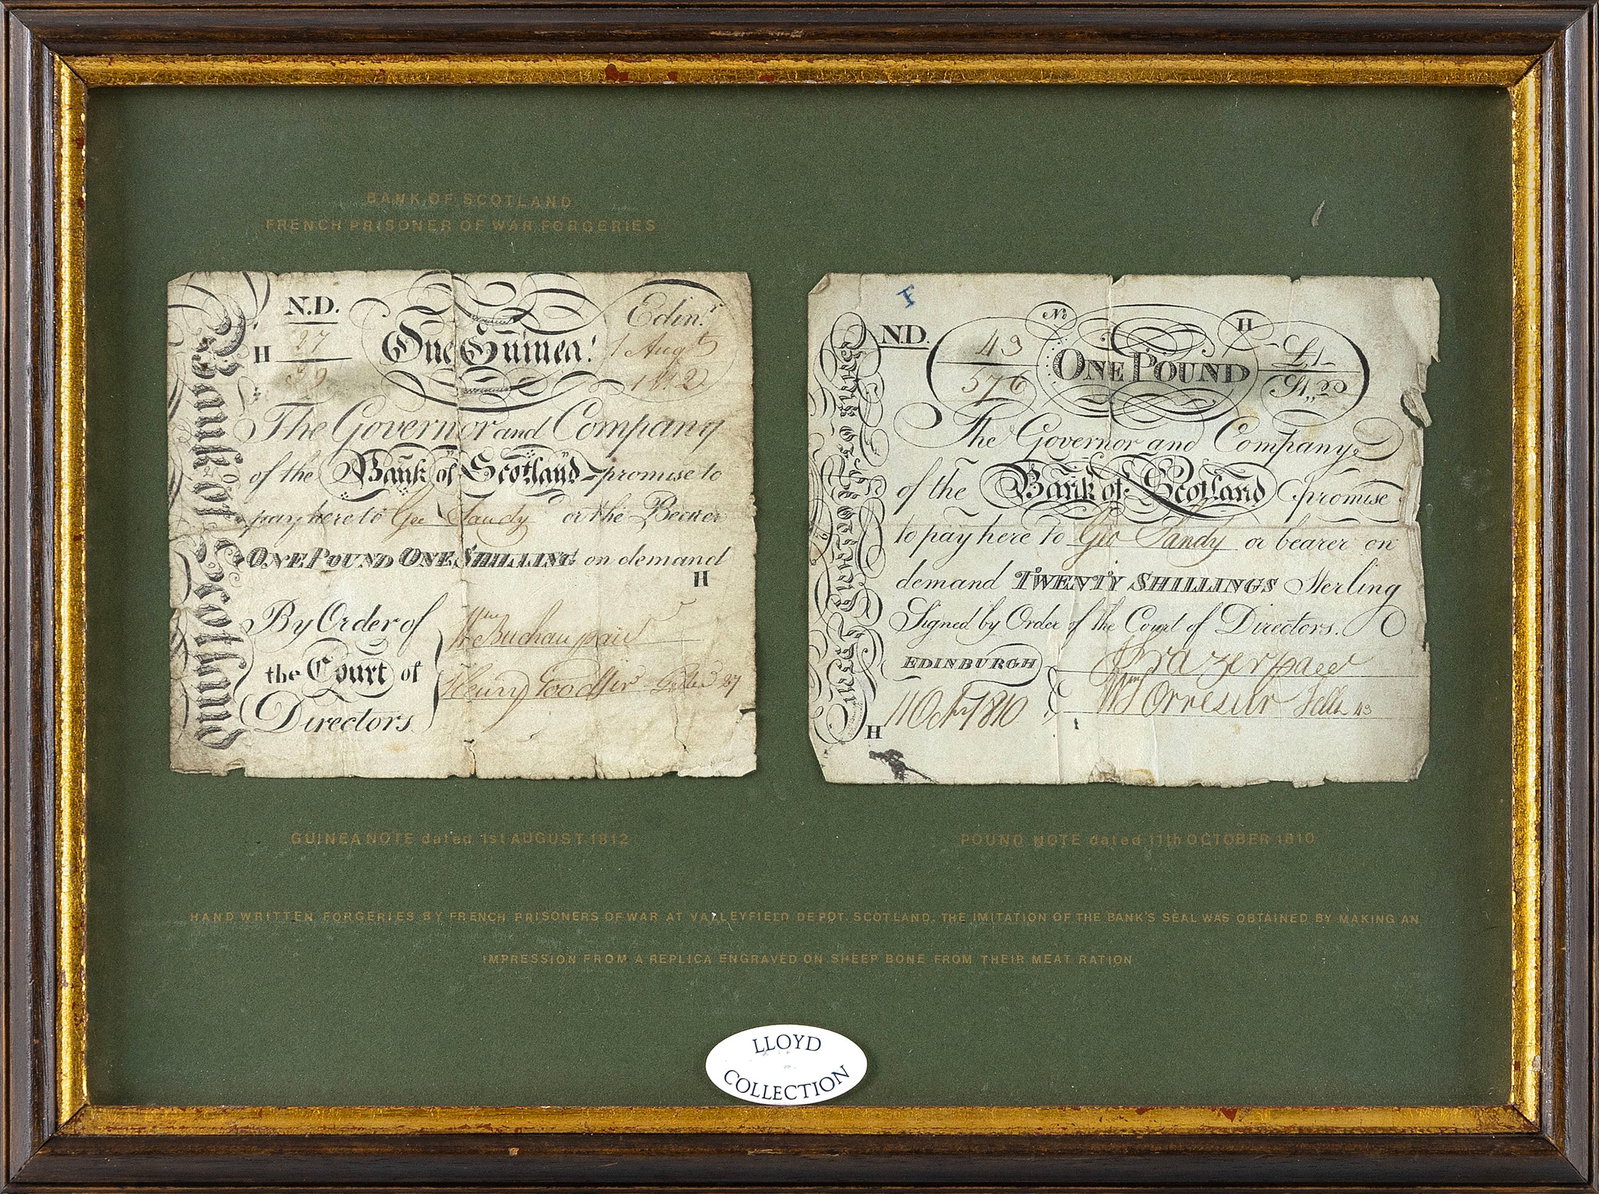 BANK OF SCOTLAND
FRENCH PRISONER OF WAR FORGERIES
Bank of Scotland
N.D.
H
37
39
One Guinea!
Edinr.
1 Augt
1812
The Governor and Company
of the Bank of Scotland promise to
pay here to Geo Sandy or the Bearer
ONE POUND ONE SHILLING on demand
H
By Order of
the Court of
Directors
Wm Buchan paid
Henry Goodsir 37
F
N.D.
43
576
No
H
ONE POUND
£1
St,, 20
The Governor and Company
of the Bank of Scotland promise
to pay here to Geo Sandy or bearer on
demand TWENTY SHILLINGS Sterling
Signed by Order of the Court of Directors.
EDINBURGH
11 Octr 1810
Frazer
43
H
GUINEA NOTE dated 1st AUGUST 1812
POUND NOTE dated 11th OCTOBER 1810
HAND WRITTEN FORGERIES BY FRENCH PRISONERS OF WAR AT VALLEYFIELD DEPOT, SCOTLAND. THE IMITATION OF THE BANK'S SEAL WAS OBTAINED BY MAKING AN
IMPRESSION FROM A REPLICA ENGRAVED ON SHEEP BONE FROM THEIR MEAT RATION
LLOYD
COLLECTION